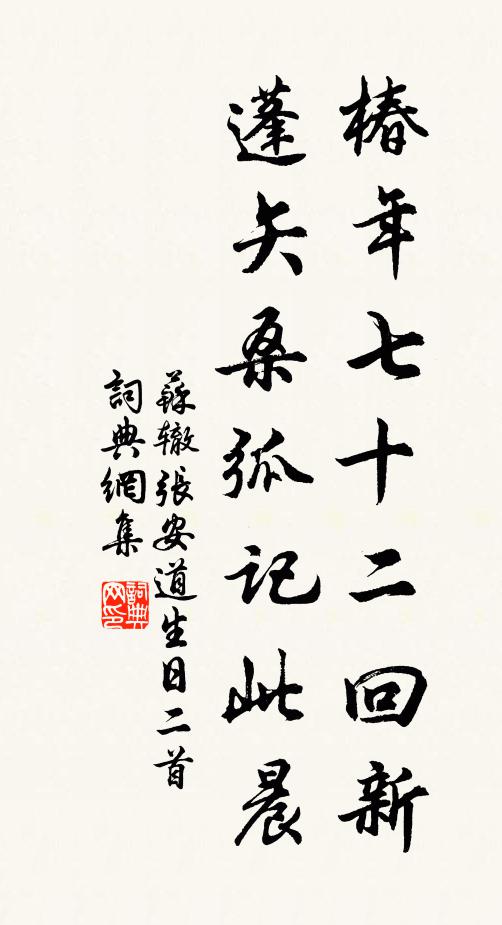 椿年七十二回新
蓬矢桑弧記此晨
蘇辙張安道生日二首
詞典網集
詞典网印